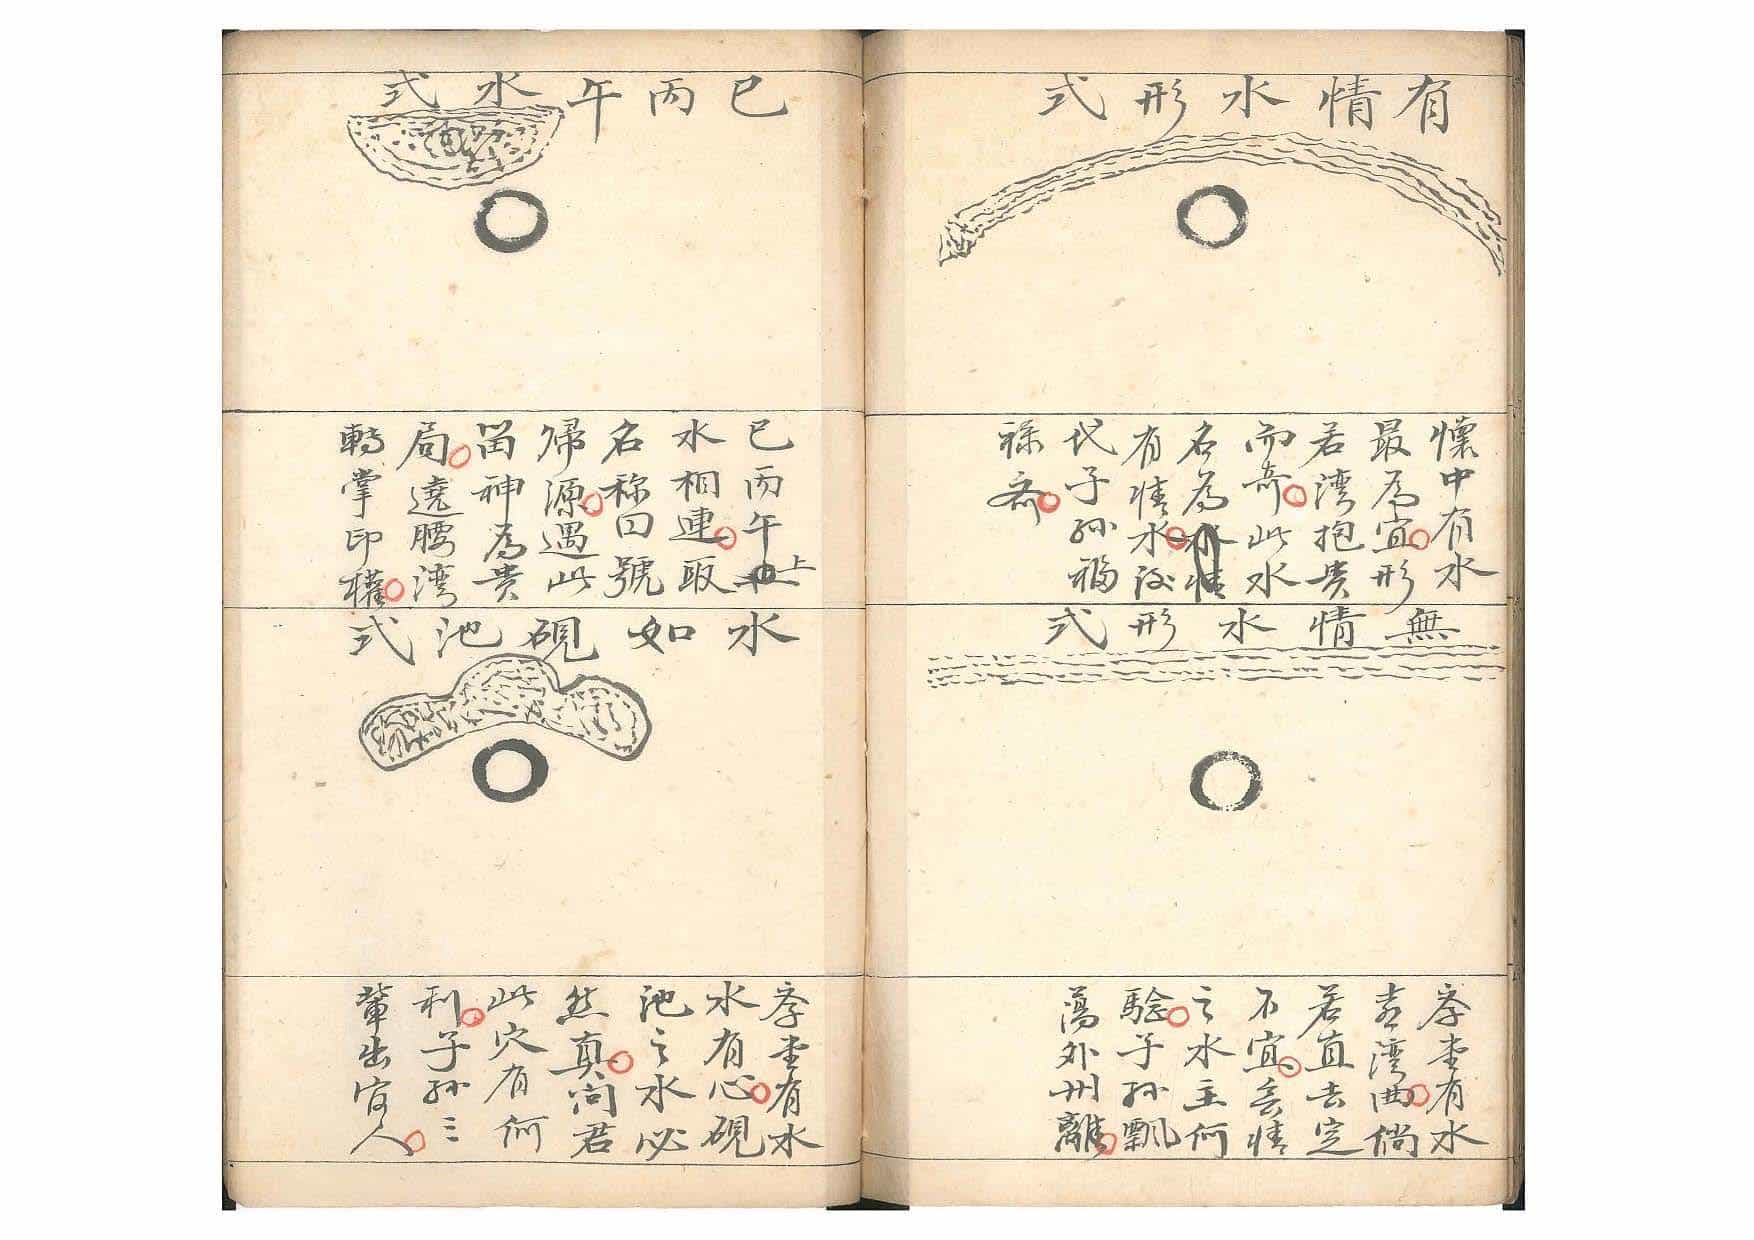 有情水形式
懷中有水
最為宜形
若湾抱貴
而奇此水
名為
有情水後
代子孫福
祿齐
無情水形式
堂有水
喜湾曲倘
若直去定
不宜無情
之水主何
驗子孫飄
蕩外州離
巳丙午水式
巳丙午上
水相連取
名称曰號
帰源遇此
留神為貴
局遶腰湾
轉掌印權
水如硯池式
堂有水
水有心硯
池之水必
然真問君
此穴有何
利子孫三
輩出官人